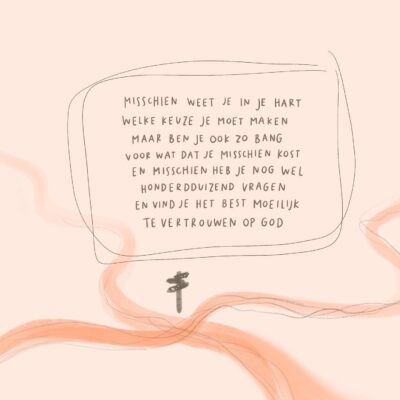 MISSCHIEN WEET JE IN JE HART
WELKE KEUZE JE MOET MAKEN
MAAR BEN JE OOK ZO BANG
VOOR WAT DAT JE MISSCHIEN KOST
EN MISSCHIEN HEB JE NOG WEL
HONDERDDUIZEND VRAGEN
EN VIND JE HET BEST MOEILIJK
TE VERTROUWEN OP GOD